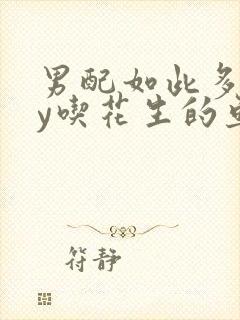 男配如此多
y喫花生的
符静